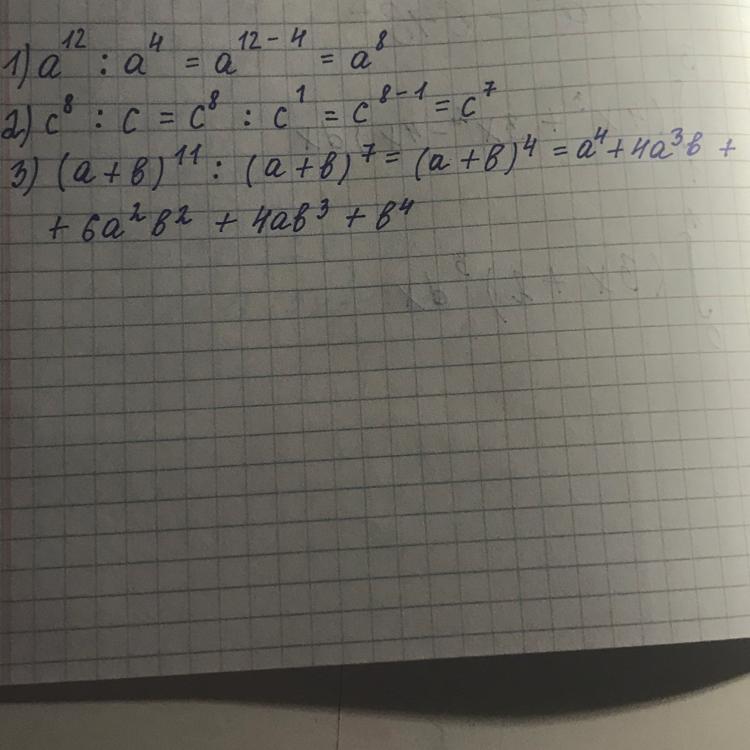 1) a¹² : a⁴ = a¹²⁻⁴ = a⁸
2) c⁸ : c = c⁸ : c¹ = c⁸⁻¹ = c⁷
3) (a+b)¹¹ : (a+b)⁷ = (a+b)⁴ = a⁴ + 4a³b +
+ 6a²b² + 4ab³ + b⁴